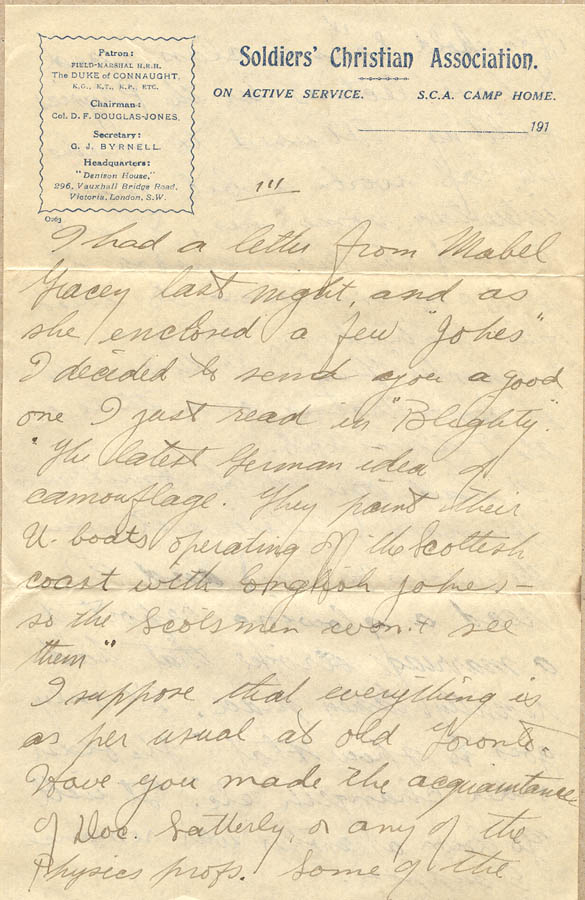 Patron:
FIELD-MARSHAL H.R.H.
The DUKE of CONNAUGHT,
K.G., K.T., K.P., ETC.
Chairman:
Col. D. F. DOUGLAS-JONES.
Secretary:
G. J. BYRNELL.
Headquarters:
"Denison House,"
296, Vauxhall Bridge Road,
Victoria, London, S.W.
Soldiers' Christian Association.
ON ACTIVE SERVICE. S.C.A. CAMP HOME.
191
III
I had a letter from Mabel
Gracey last night, and as
she enclosed a few "Jokes"
I decided to send you a good
one I just read in "Blighty".
"The latest German idea of
camouflage. They paint their
U-boats operating off the Scottish
coast with English jokes –
so the Scotsmen won't see
them"
I suppose that everything is
as per usual at old Toronto.
Have you made the acquaintance
of Doc. Satterly, or any of the
Physics profs. Some of the